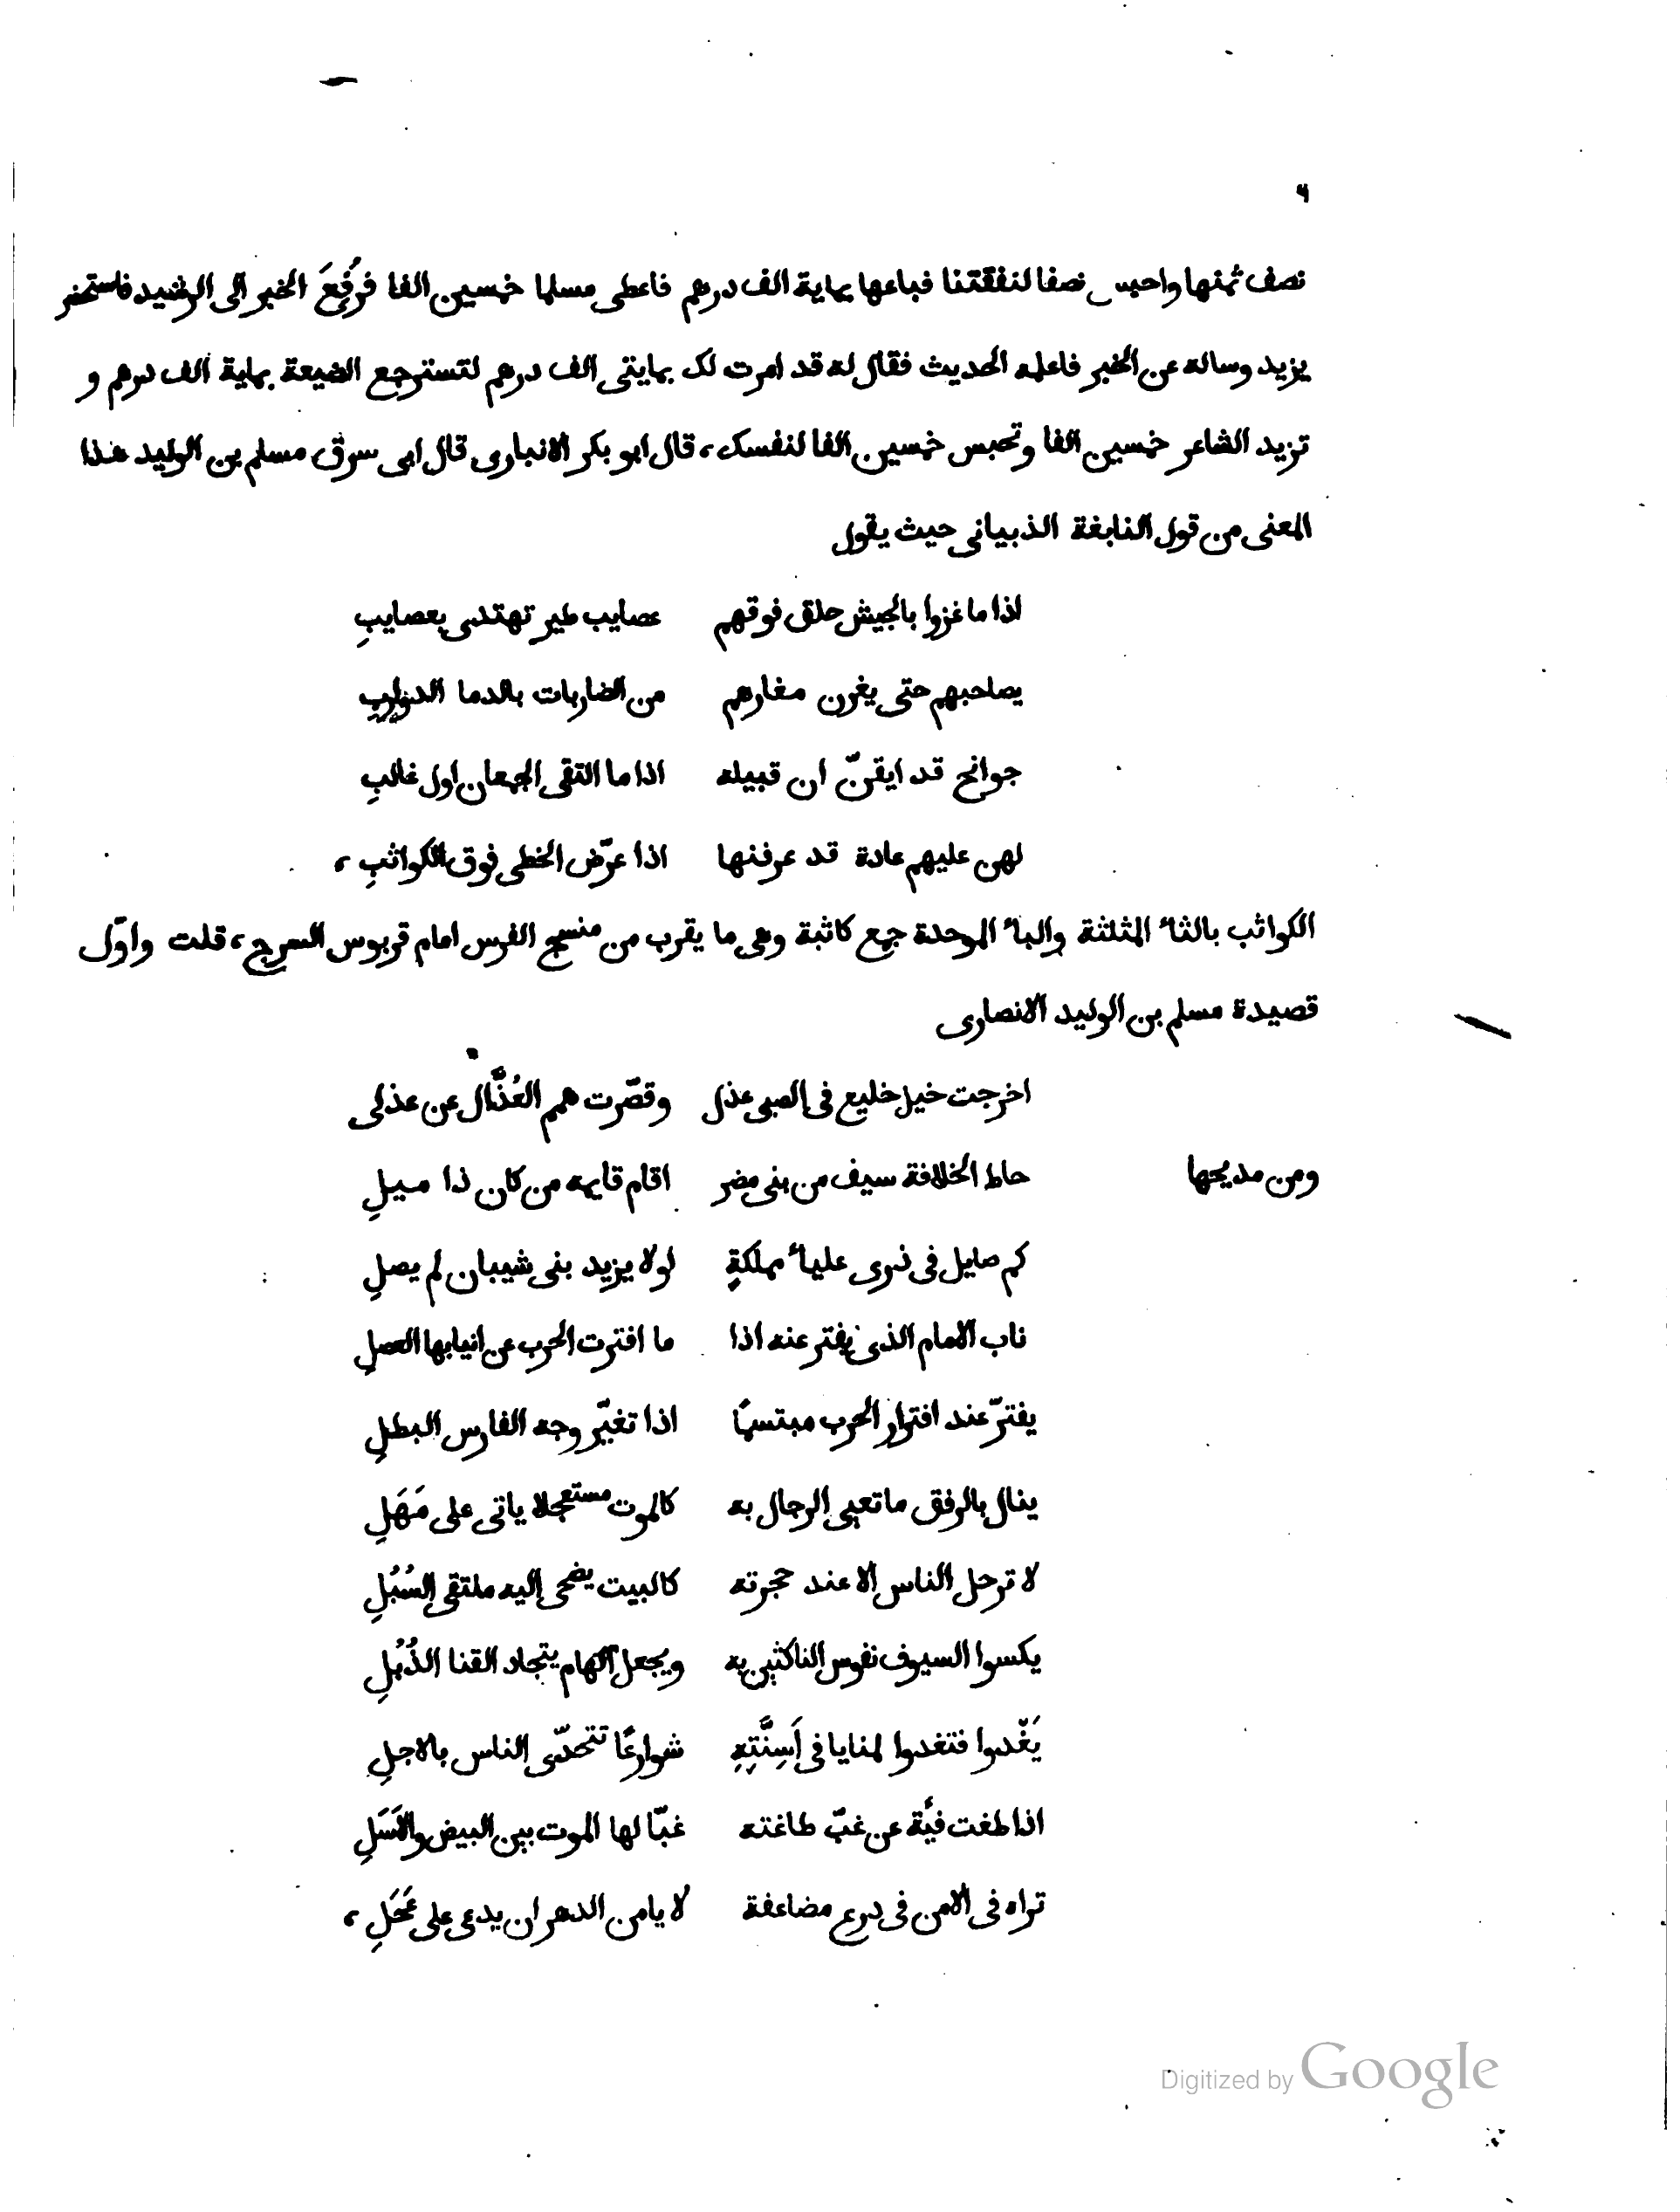 ٩
نصف ثمنها واحبس نصفا لنفقتنا فباعها بماية الف درهم فاعطى مسلما خمسين الفا فرُفِعَ الخبر الى الرشيد فاستحضر
يزيد وساله عن الخبر فاعلمه الحديث فقال له قد امرت لك بمايتى الف درهم لتسترجع الضيعة بماية الف درهم و
تزيد الشاعر خمسين الفا وتحبس خمسين الفا لنفسك، قال ابو بكر الانبارى قال ابى سرق مسلم بن الوليد هذا
المعنى من قول النابغة الذبيانى حيث يقول
اذا ما غزوا بالجيش حلق فوقهم عصايب طير تهتدى بعصايبِ
يصاحبهم حتى يغرن مغارهم من الضاربات بالدما الدواربِ
جوانح قد ايقنّ ان قبيله اذا ما التقى الجمعان اول غالبِ
لهن عليهم عادة قد عرفنها اذا عرّض الخطى فوق الكواثبِ،
الكواثب بالثاء المثلثة والباء الموحدة جمع كاثبة وهى ما يقرب من منسج الفرس امام قربوس السرج، قلت واوّل
قصيدة مسلم بن الوليد الانصارى
اخرجت خيل خليع فى الصبى عذل وقصّرت همم العُذَّال عن عذلى
ومن مديحها حاط الخلافة سيف من بنى مضر اقام قايمه من كان ذا ميلِ
كم صايل فى ذرى علياء مملكةٍ لولا يزيد بنى شيبان لم يصلِ
ناب الامام الذى يفتر عنه اذا ما افترت الحرب عن انيابها العصلِ
يفترّ عند افترار الحرب مبتسمًا اذا تغيّر وجه الفارس البطلِ
ينال بالرفق ما تعيى الرجال به كالموت مستعجلا ياتى على مَهَلِ
لا ترحل الناس الا عند حجرته كالبيت يضحى اليه ملتقى السُبُلِ
يكسوا السيوف نفوس الناكثين به ويجعل الهام يتجاد القنا الذُبُلِ
يَغْدوا فتغدوا لمنايا فى اَسِنَّتِهِ شوارعًا تتحدّى الناس بالاجلِ
اذا طغت فيَّة عن غبّ طاغته غبّا لها الموت بين البيض والاَسَلِ
تراه فى الامن فى درع مضاعفة لا يامن الدهر ان يدعى على عَجَلِ،
Digitized by Google